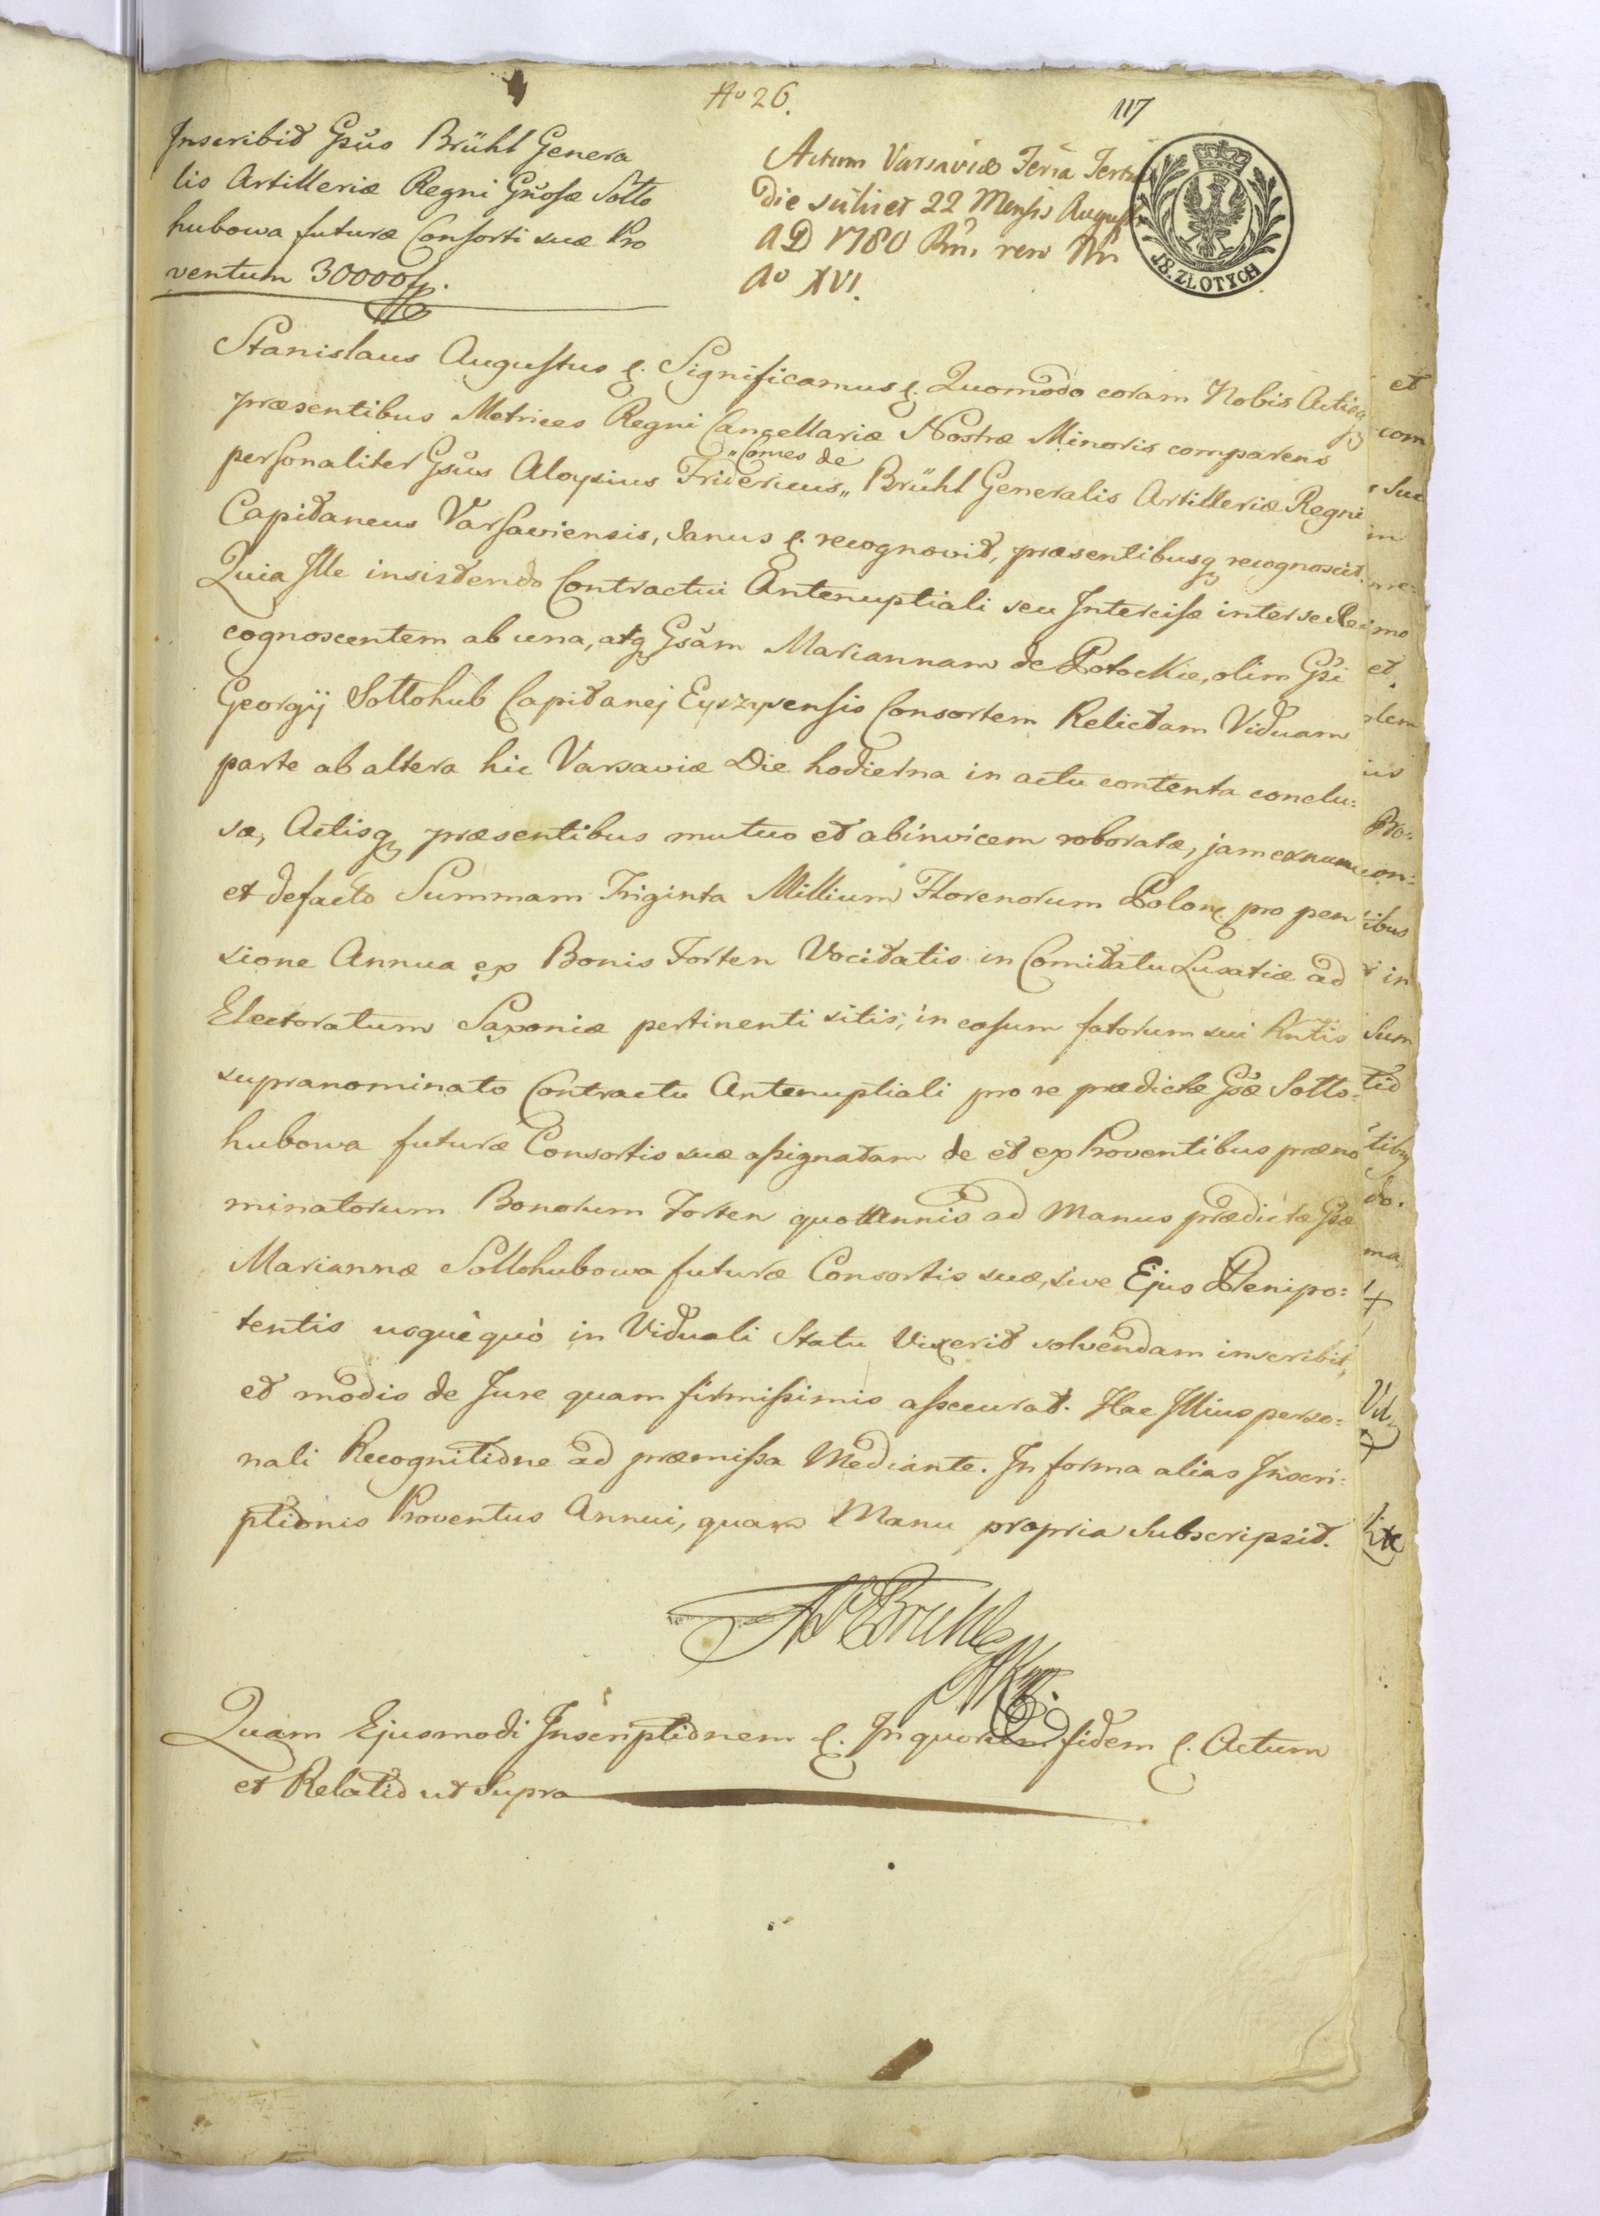 No 26.
117
Inscribit Gsus Brühl Genera
lis Artilleriæ Regni Gnosæ Sołło
hubowa futuræ Consorti suæ Pro
ventum 30000 f.
Actum Varsaviæ Feria Tertia
Die scilicet 22 Mensis Augusti
AD 1780 Rni. vero Nri
Ao XVI.
18. ZŁOTYCH
Stanislaus Augustus &. Significamus &. Quomodo coram Nobis Actisq
præsentibus Metrices Regni Cancellariæ Nostræ Minoris comparens
personaliter Gsus Aloysius Fridericus Comes de Brühl Generalis Artilleriæ Regni
Capitaneus Varsaviensis, Sanus &. recognovit, præsentibusq recognoscit.
Quia Ille insistendo Contractui Antenuptiali seu Intercisæ inter se Re
cognoscentem ab una, atq Gsam Mariannam de Potockie, olim Gsi
Georgij Sołłohub Capitanej Eyszyszensis Consortem Relictam Viduam
parte ab altera hic Varsaviæ Die hodierna in actu contenta conclu:
sæ, Actisq præsentibus mutuo et abinvicem roboratæ, jam ex nunc
et defacto Summam Triginta Millium Florenorum Polon. pro pen
sione Annua ex Bonis Forten Vocitatis in Comitatu Lusatiæ ad
Electoratum Saxoniæ pertinenti sitis, in casum fatorum sui Rntis
supranominato Contractu Antenuptiali pro re prædictæ Gsæ Sołło:
hubowa futuræ Consortis suæ assignatam de et ex Proventibus præno
minatorum Bonorum Forten quotannis ad Manus prædictæ Gsæ
Mariannæ Sołłohubowa futuræ Consortis suæ, sive Ejus Plenipo:
tentis usquequò in Viduali Statu Vixerit solvendam inscribit,
et modis de Jure quam firmissimis assecurat. Hac Illius perso:
nali Recognitione ad præmissa Mediante. In forma alias Inscri:
ptionis Proventus Annui, quam Manu propria Subscripsit.
Brühl
Quam Ejusmodi Inscriptionem &. In quorum fidem &. Actum
et Relatio ut Supra